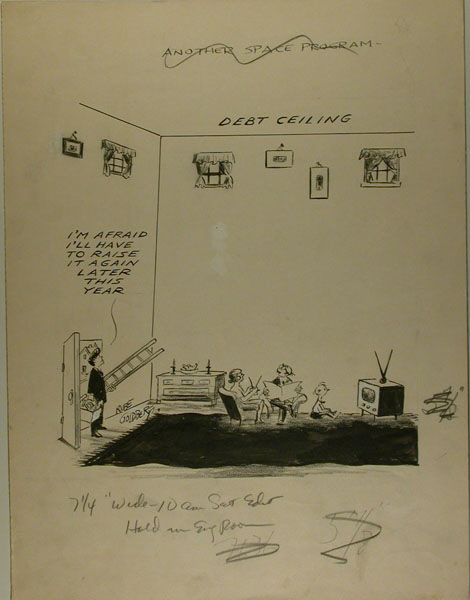 ANOTHER SPACE PROGRAM-
DEBT CEILING
I'M AFRAID
I'LL HAVE
TO RAISE
IT AGAIN
LATER
THIS
YEAR
RUBE
GOLDBERG
7 1/4 " Wide - 10 am Sat Edit
Hold in Eng Room